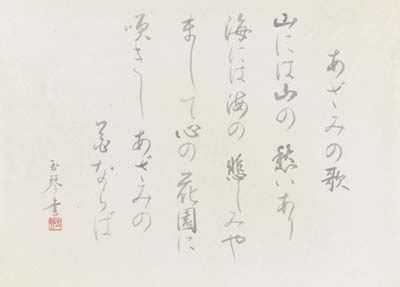 あざみの歌
山には山の愁いあり
海には海の悲しみや
まして心の花園に
咲きしあざみの
花ならば
玉琴書